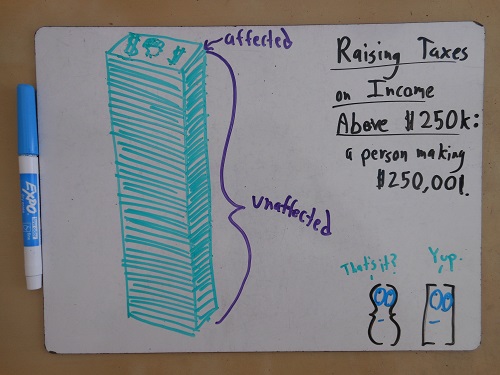 affected
unaffected
Raising Taxes
on Income
Above $250k:
a person making
$250,001.
That's it?
Yup.
EXPO